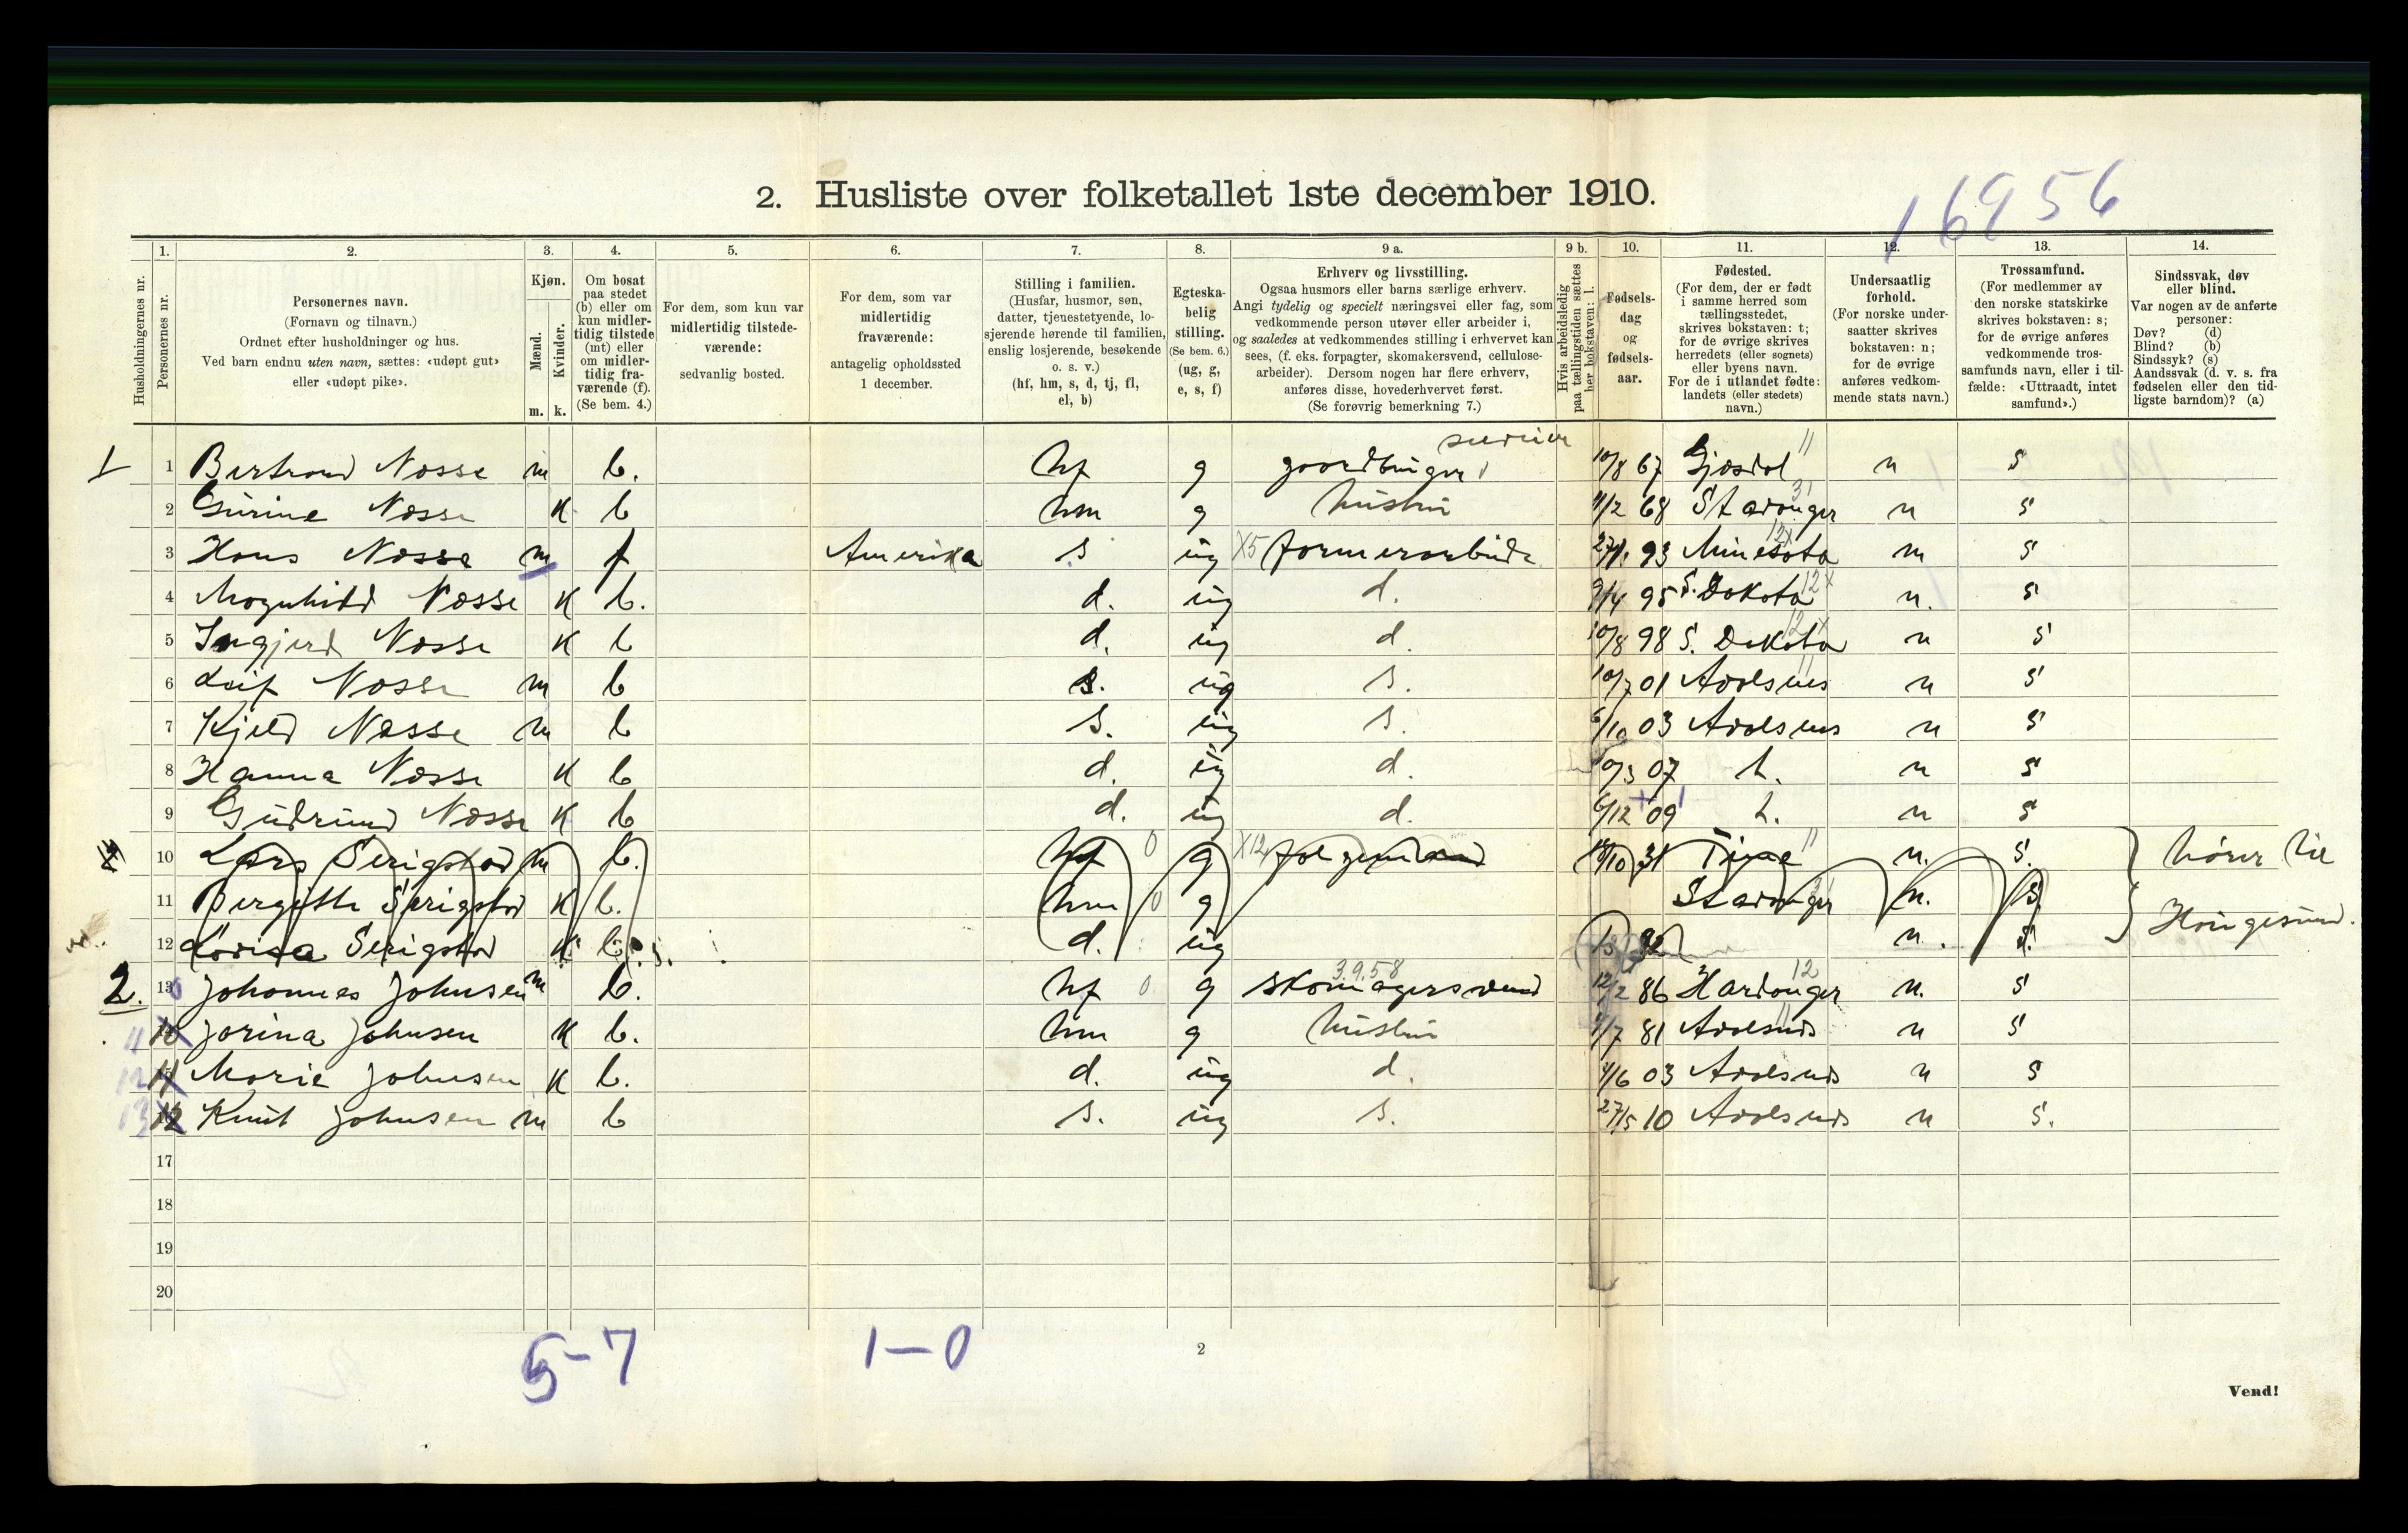 16956
2. Husliste over folketallet 1ste december 1910.
Husholdningernes nr.
1. Personernes nr.
2. Personernes navn.
(Fornavn og tilnavn.)
Ordnet efter husholdninger og hus.
Ved barn endnu uten navn, sættes: «udøpt gut»
eller «udøpt pike».
3. Kjøn.
Mænd. m.
Kvinder. k.
4. Om bosat
paa stedet
(b) eller om
kun midler-
tidig tilstede
(mt) eller
om midler-
tidig fra-
værende (f).
(Se bem. 4.)
5. For dem, som kun var
midlertidig tilstede-
værende:
sedvanlig bosted.
6. For dem, som var
midlertidig
fraværende:
antagelig opholdssted
1 december.
7. Stilling i familien.
(Husfar, husmor, søn,
datter, tjenestetyende, lo-
sjerende hørende til familien,
enslig losjerende, besøkende
o. s. v.)
(hf, hm, s, d, tj, fl,
el, b)
8. Egteska-
belig
stilling.
(Se bem. 6.)
(ug, g,
e, s, f)
9 a. Erhverv og livsstilling.
Ogsaa husmors eller barns særlige erhverv.
Angi tydelig og specielt næringsvei eller fag, som
vedkommende person utøver eller arbeider i,
og saaledes at vedkommendes stilling i erhvervet kan
sees, (f. eks. forpagter, skomakersvend, cellulose-
arbeider). Dersom nogen har flere erhverv,
anføres disse, hovederhvervet først.
(Se forøvrig bemerkning 7.)
9 b. Hvis arbeidsledig
paa tællingstiden sættes
her bokstaven: l.
10. Fødsels-
dag
og
fødsels-
aar.
11. Fødested.
(For dem, der er født
i samme herred som
tællingsstedet,
skrives bokstaven: t;
for de øvrige skrives
herredets (eller sognets)
eller byens navn.
For de i utlandet fødte:
landets (eller stedets)
navn.)
12. Undersaatlig
forhold.
(For norske under-
saatter skrives
bokstaven: n;
for de øvrige
anføres vedkom-
mende stats navn.)
13. Trossamfund.
(For medlemmer av
den norske statskirke
skrives bokstaven: s;
for de øvrige anføres
vedkommende tros-
samfunds navn, eller i til-
fælde: «Uttraadt, intet
samfund».)
14. Sindssvak, døv
eller blind.
Var nogen av de anførte
personer:
Døv? (d)
Blind? (b)
Sindssyk? (s)
Aandssvak (d. v. s. fra
fødselen eller den tid-
ligste barndom)? (a)
1 1 Bertrand Næsse m b. hf g gaardbruger 10/8 67 Gjæsdal n s
2 Gurine Næsse k b hm g hustru 11/2 68 Stavanger n s
3 Hans Næsse m f Amerika s ug X5 farmerarbeide 93 Minesota n s
4 Magnhild Næsse k b. d. ug d. 9/4 95 S. Dakota n. s
5 Ingjerd Næsse k b d. ug d. 10/8 98 S. Dakota n s
6 Leif Næsse m b s. ug s. 10/7 01 n s
7 Kjeld Næsse m b s. ug s. 6/10 03 n s
8 Hanna Næsse k b d. ug d. 07 t. n s
9 Gudrund Næsse k b d. ug d. 6/12 09 t. n s
10 Lars Serigstad m b. hf 0 g X12 18/10 31 Time n. s. hører
11 Bergitte Serigstad k b. hm 0 g Stavanger n. s. Haugesund.
12 Serigstad k b d. ug 92 n. s.
2. 13 Johannes Johnsen m b. hf 0 g 3.9.58 skomagersvend 12/2 86 Hardanger 12 n. s
11 Jorina Johnsen k b. hm g hustru 4/7 81 n s
12 Marie Johnsen k b. d. ug d. 4/6 03 n s
13 Knut Johnsen m b s. ug s. 27/5 10 n s.
17
18
19
20
5-7 1-0
2
Vend!